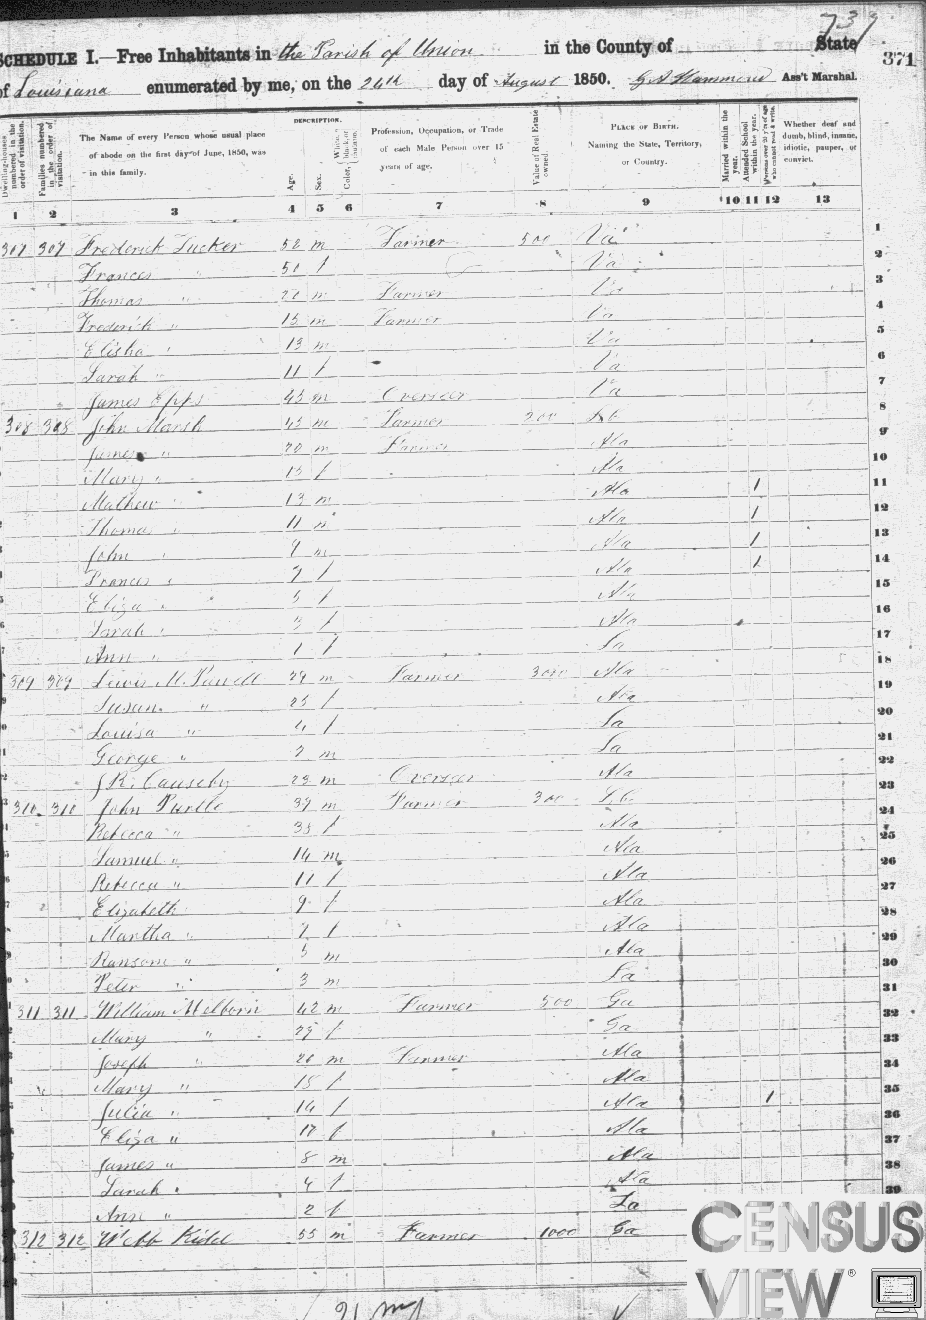 739
SCHEDULE I.—Free Inhabitants in the Parish of Union in the County of State 371
of Louisiana enumerated by me, on the 26th day of August 1850. Ass't Marshal.
Dwelling-houses numbered in the order of visitation.
Families numbered in the order of visitation.
The Name of every Person whose usual place of abode on the first day of June, 1850, was in this family.
DESCRIPTION.
Age.
Sex.
Color, White, black, or mulatto.
Profession, Occupation, or Trade of each Male Person over 15 years of age.
Value of Real Estate owned.
PLACE OF BIRTH. Naming the State, Territory, or Country.
Married within the year.
Attended School within the year.
Persons over 20 y'rs of age who cannot read & write.
Whether deaf and dumb, blind, insane, idiotic, pauper, or convict.
1 2 3 4 5 6 7 8 9 10 11 12 13
307 307 Frederick Tucker 52 m Farmer 500 Va 1
Frances " 50 f Va 2
Thomas " m Farmer Va 3
Frederick " 15 m Farmer Va 4
Elisha " 13 m Va 5
Sarah " 11 f Va 6
James Epps 45 m Overseer Va 7
308 308 John Marsh 45 m Farmer 200 8
James " 20 m Farmer Ala 9
Mary " 15 f Ala 10
Mathew " 13 m Ala 1 11
Thomas " 11 m Ala 1 12
John " 9 m Ala 1 13
Frances " 7 f Ala 1 14
Eliza " 5 f Ala 15
Sarah " 3 f Ala 16
Ann " 1 f La 17
309 309 Lewis M. 29 m Farmer 3000 Ala 18
Susan " 25 f Ala 19
Louisa " 4 f La 20
George " 2 m La 21
J R. Causeby 23 m Overseer Ala 22
310 310 John 39 m Farmer 300 23
Rebecca " 35 f Ala 24
Samuel " 14 m Ala 25
Rebecca " 11 f Ala 26
Elizabeth 9 f Ala 27
Martha " 7 f Ala 28
Ransom " 5 m Ala 29
Peter " 3 m La 30
311 311 William Milborn 42 m Farmer 500 Ga 31
Mary " 39 f Ga 32
Joseph " 20 m Farmer Ala 33
Mary " 18 f Ala 34
Julia " 14 f Ala 1 35
Eliza " f Ala 36
James " 8 m Ala 37
Sarah " 4 f Ala 38
Ann " 2 f La 39
312 312 Webb Kidd 55 m Farmer 1000 Ga
CENSUS
VIEW®